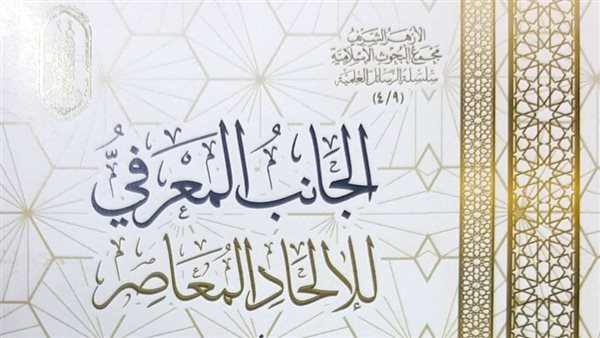 الأزهر الشريف
مجمع البحوث الإسلامية
سلسلة الرسائل العلمية
(٤/٩)
الجَانبُ المَعْرَفيُّ
للإلحَادِ المُعَاصِر